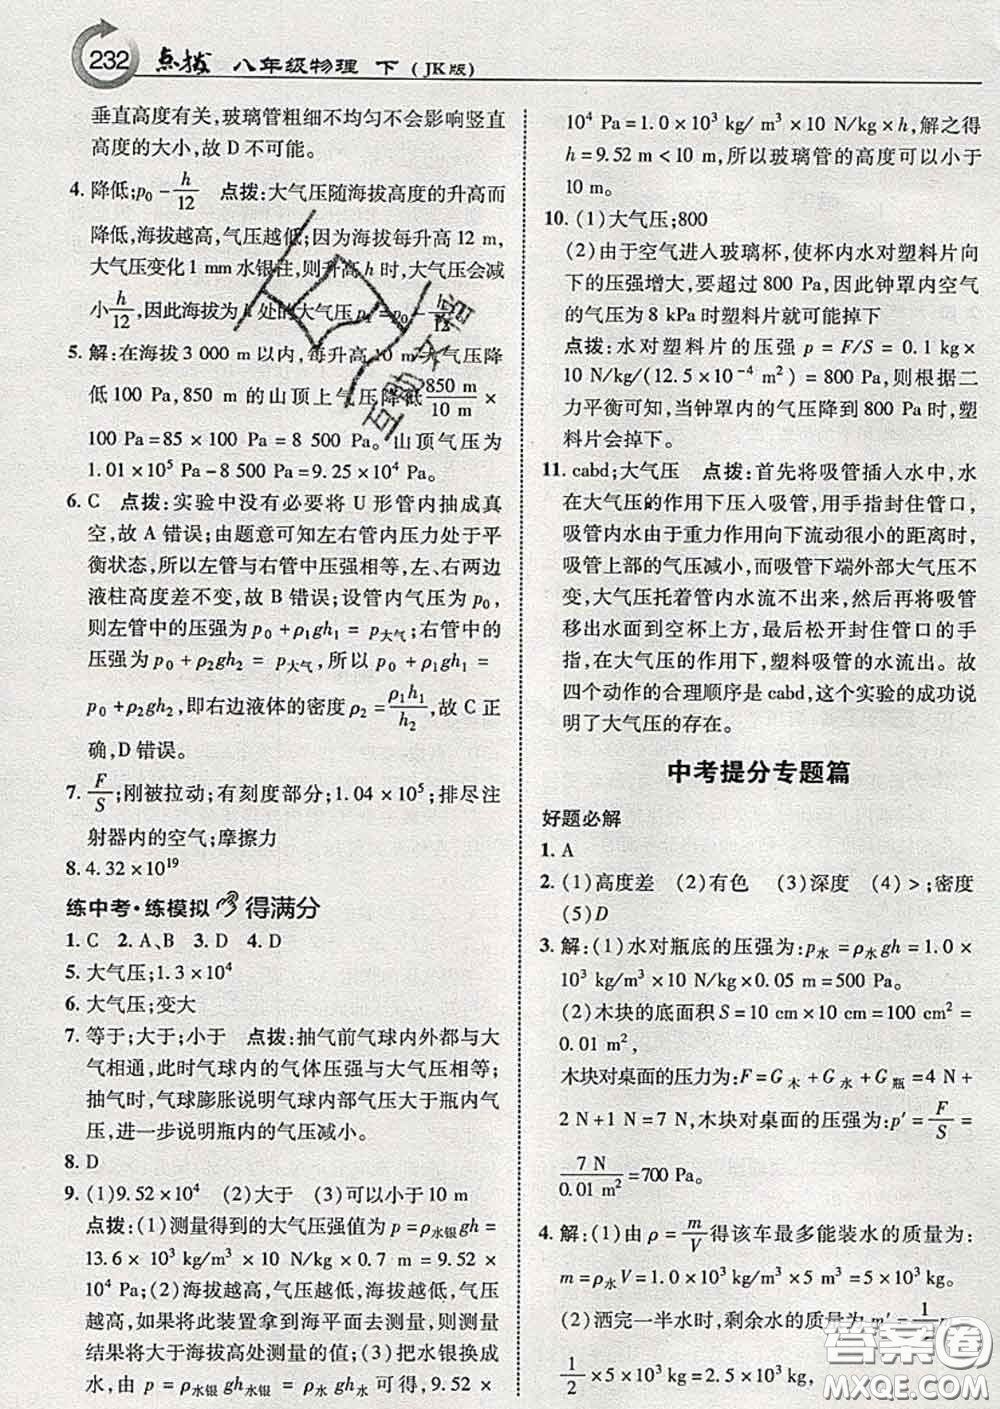 232 点拨 八年级物理 下 (JK版)
垂直高度有关,玻璃管粗细不均匀不会影响竖直
高度的大小,故 D 不可能。
4. 降低;p₀ - h/12 点拨:大气压随海拔高度的升高而
降低,海拔越高,气压越低;因为海拔每升高 12 m,
大气压变化 1 mm 水银柱,则升高 h 时,大气压会减
小 h/12,因此海拔为 h 处的大气压 p₁ = p₀ - h/12。
5. 解:在海拔 3 000 m 以内,每升高 10 m,大气压降
低 100 Pa,850 m 的山顶上气压降低 850 m/10 m ×
100 Pa=85×100 Pa=8 500 Pa。山顶气压为
1.01×10⁵ Pa-8 500 Pa=9.25×10⁴ Pa。
6. C 点拨:实验中没有必要将 U 形管内抽成真
空,故 A 错误;由题意可知左右管内压力处于平
衡状态,所以左管与右管中压强相等,左、右两边
液柱高度差不变,故 B 错误;设管内气压为 p₀,
则左管中的压强为 p₀+ρ₁gh₁ = p大气;右管中的
压强为 p₀+ρ₂gh₂ = p大气,所以 p₀+ρ₁gh₁ =
p₀+ρ₂gh₂,即右边液体的密度 ρ₂ = ρ₁h₁/h₂,故 C 正
确,D 错误。
7. F/S;刚被拉动;有刻度部分;1.04×10⁵;排尽注
射器内的空气;摩擦力
8. 4.32×10¹⁹
练中考·练模拟 得满分
1. C 2. A、B 3. D 4. D
5. 大气压;1.3×10⁴
6. 大气压;变大
7. 等于;大于;小于 点拨:抽气前气球内外都与大
气相通,此时气球内的气体压强与大气压相等;
抽气时,气球膨胀说明气球内部气压大于瓶内气
压,进一步说明瓶内的气压减小。
8. D
9. (1)9.52×10⁴ (2)大于 (3)可以小于 10 m
点拨:(1)测量得到的大气压强值为 p=ρ水银gh=
13.6×10³ kg/m³×10 N/kg×0.7 m=9.52×
10⁴ Pa;(2)海拔越高,气压越低,海拔越低,气压
越高,如果将此装置拿到海平面去测量,则测量
结果大于海拔高处测量的值;(3)把水银换成
水,由 p=ρ水银gh水银=ρ水gh水可得,9.52×
10⁴ Pa=1.0×10³ kg/m³×10 N/kg×h,解之得
h=9.52 m<10 m,所以玻璃管的高度可以小于
10 m。
10. (1)大气压;800
(2)由于空气进入玻璃杯,使杯内水对塑料片向
下的压强增大,要超过 800 Pa,因此钟罩内空气
的气压为 8 kPa 时塑料片就可能掉下
点拨:水对塑料片的压强 p=F/S=0.1 kg×
10 N/kg/(12.5×10⁻⁴ m²)=800 Pa,则根据二
力平衡可知,当钟罩内的气压降到 800 Pa 时,塑
料片会掉下。
11. cabd;大气压 点拨:首先将吸管插入水中,水
在大气压的作用下压入吸管,用手指封住管口,
吸管内水由于重力作用向下流动很小的距离,
吸管上部的气压减小,而吸管下端外部大气压不
变,大气压托着管内水流不出来,然后再将吸管
移出水面到空杯上方,最后松开封住管口的手
指,在大气压的作用下,塑料吸管的水流出。故
四个动作的合理顺序是 cabd,这个实验的成功说
明了大气压的存在。
中考提分专题篇
好题必解
1. A
2. (1)高度差 (2)有色 (3)深度 (4)>;密度
(5)D
3. 解:(1)水对瓶底的压强为:p水=ρ水gh=1.0×
10³ kg/m³×10 N/kg×0.05 m=500 Pa。
(2)木块的底面积 S=10 cm×10 cm=100 cm²=
0.01 m²,
木块对桌面的压力为:F=G木+G水+G瓶=4 N+
2 N+1 N=7 N,木块对桌面的压强为:p′=F/S=
7 N/0.01 m²=700 Pa。
4. 解:(1)由 ρ=m/V得该车最多能装水的质量为:
m=ρ水V=1.0×10³ kg/m³×5 m³=5×10³ kg。
(2)洒完一半水时,剩余水的质量为 m′=1/2
1/2×5×10³ kg=2.5×10³ kg,
互助文信
答案圈
MXQE.COM